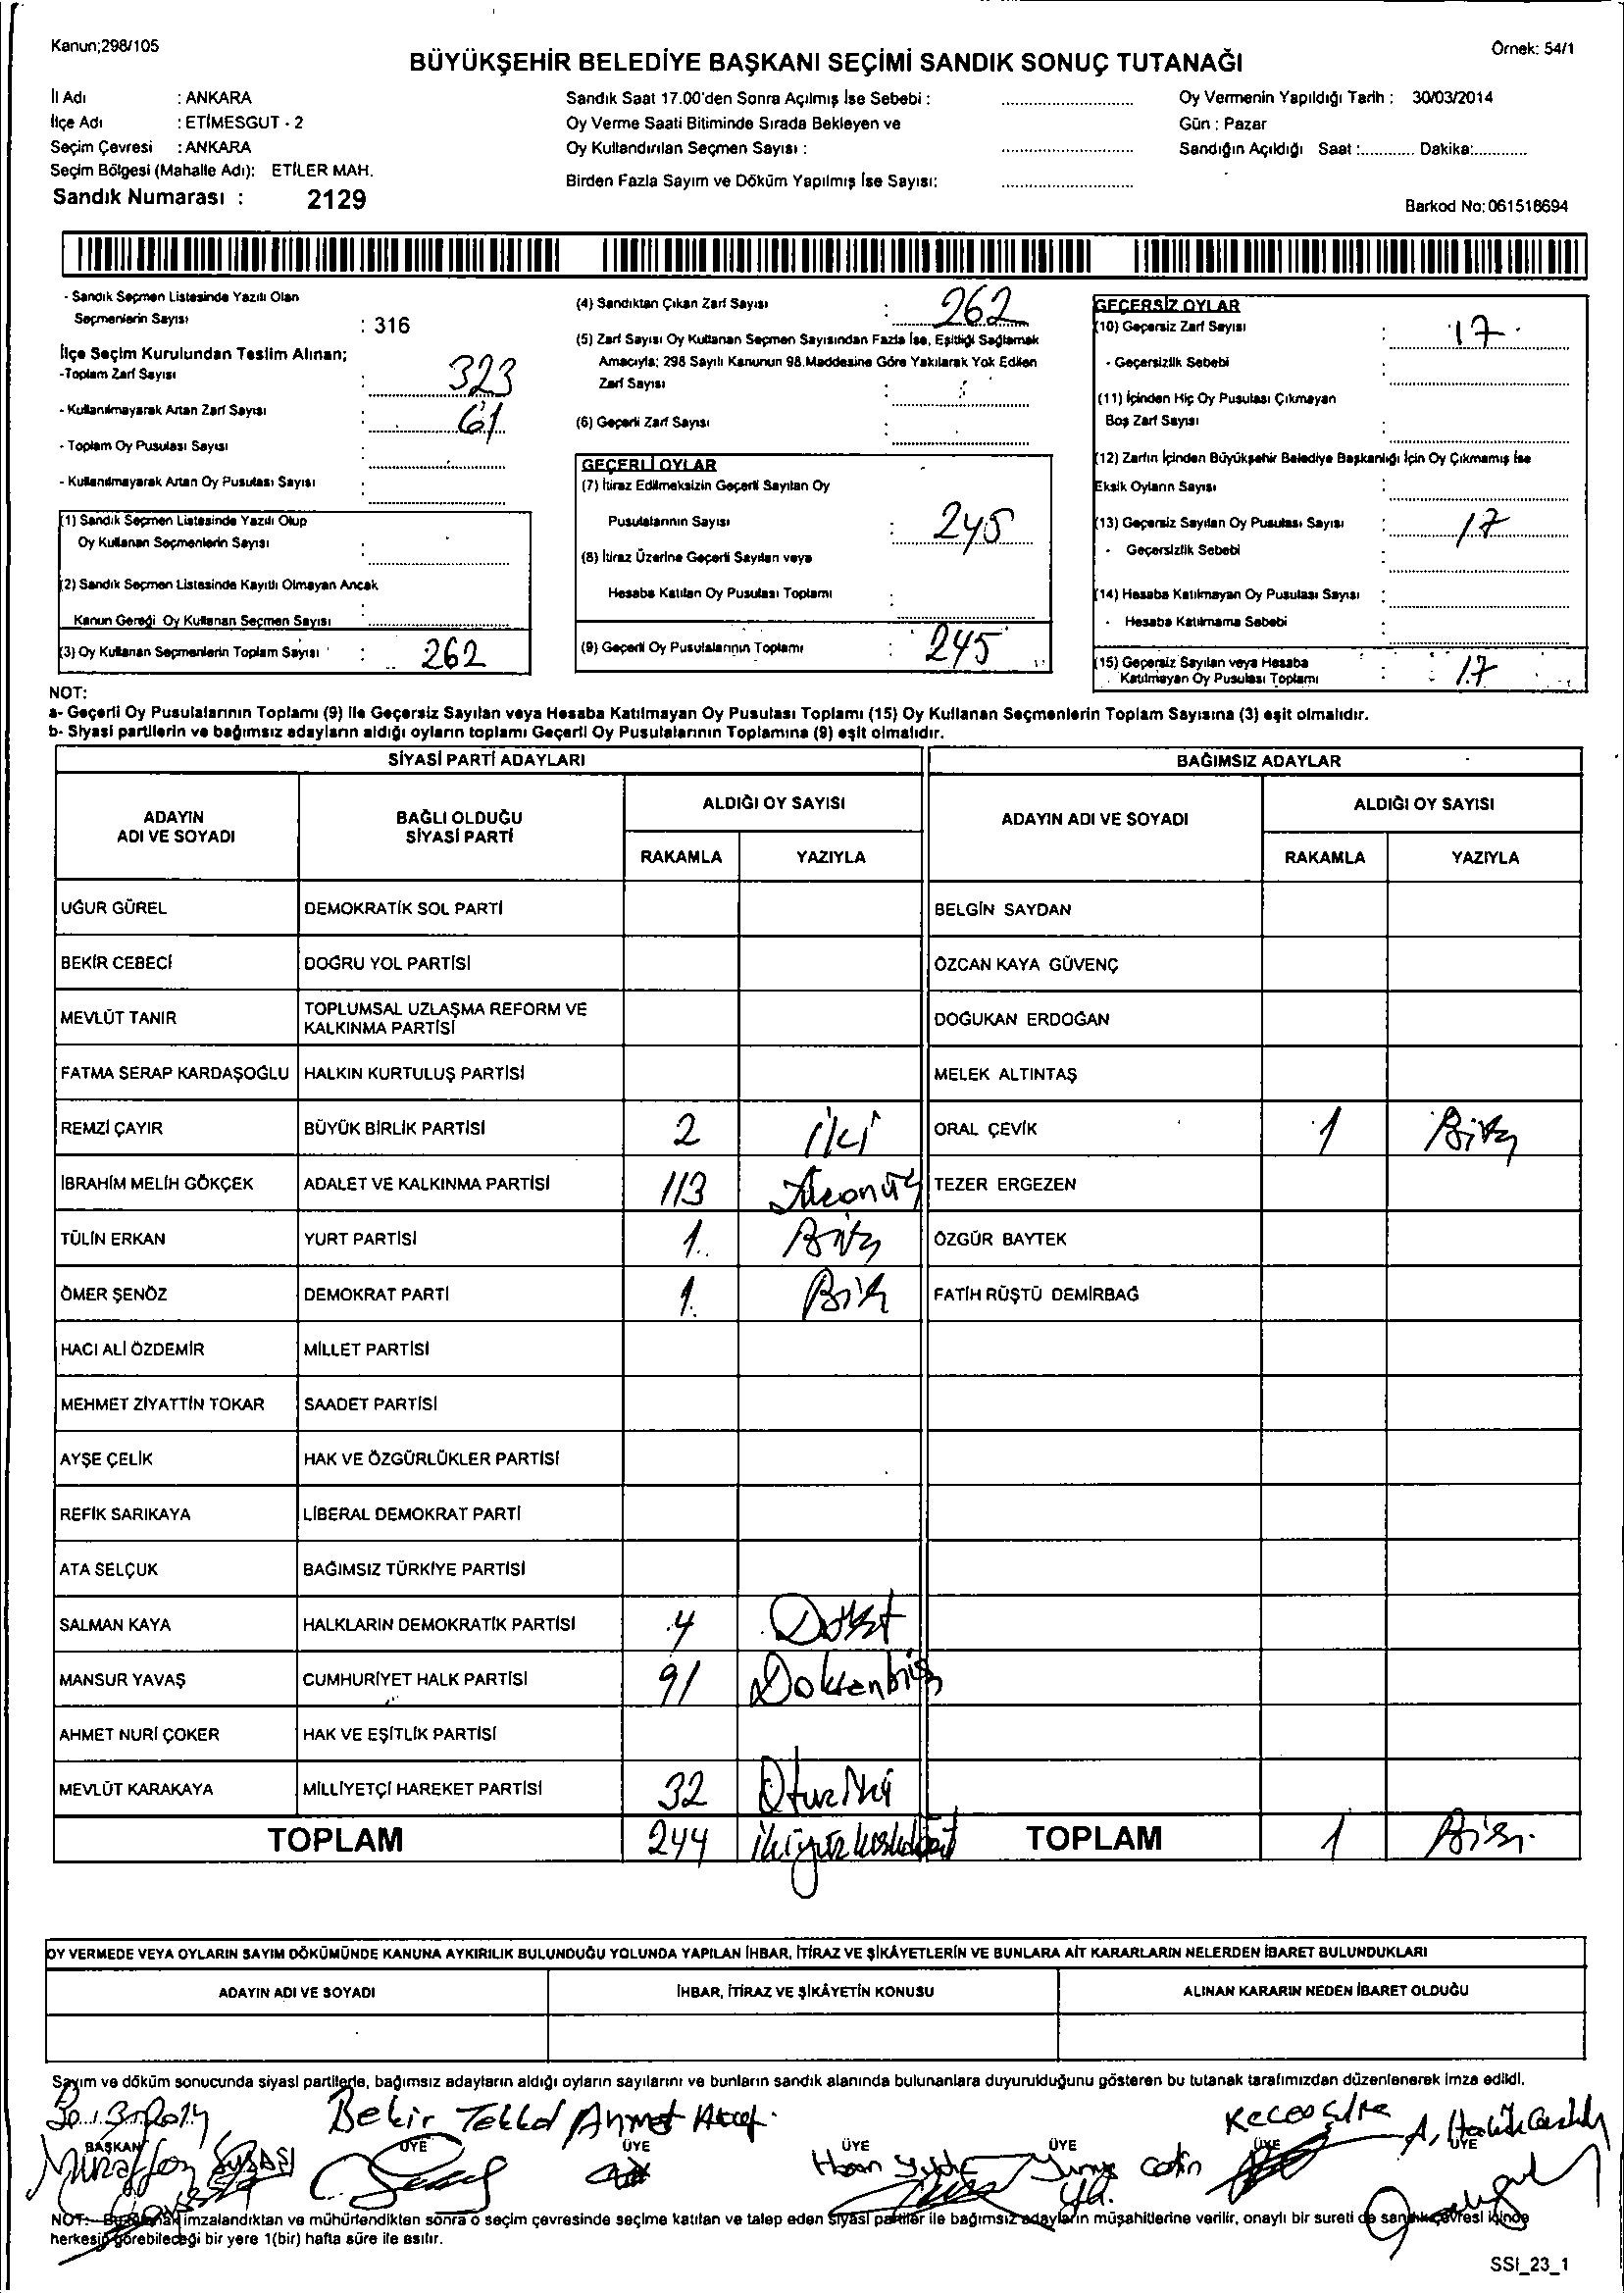 Kanun;298/105
Örnek: 54/1
BÜYÜKŞEHİR BELEDİYE BAŞKANI SEÇİMİ SANDIK SONUÇ TUTANAĞI
İl Adı : ANKARA
İlçe Adı : ETİMESGUT - 2
Seçim Çevresi : ANKARA
Seçim Bölgesi (Mahalle Adı): ETİLER MAH.
Sandık Numarası : 2129
Sandık Saat 17.00'den Sonra Açılmış İse Sebebi :
Oy Verme Saati Bitiminde Sırada Bekleyen ve
Oy Kullandırılan Seçmen Sayısı :
Birden Fazla Sayım ve Döküm Yapılmış İse Sayısı:
Oy Vermenin Yapıldığı Tarih : 30/03/2014
Gün : Pazar
Sandığın Açıldığı Saat :............ Dakika:............
Barkod No: 061518694
- Sandık Seçmen Listesinde Yazılı Olan
Seçmenlerin Sayısı : 316
İlçe Seçim Kurulundan Teslim Alınan;
-Toplam Zarf Sayısı : 323
- Kullanılmayarak Artan Zarf Sayısı : 61
- Toplam Oy Pusulası Sayısı :
- Kullanılmayarak Artan Oy Pusulası Sayısı :
(1) Sandık Seçmen Listesinde Yazılı Olup
Oy Kullanan Seçmenlerin Sayısı :
(2) Sandık Seçmen Listesinde Kayıtlı Olmayan Ancak
Kanun Gereği Oy Kullanan Seçmen Sayısı :
(3) Oy Kullanan Seçmenlerin Toplam Sayısı : 262
(4) Sandıktan Çıkan Zarf Sayısı : 262
(5) Zarf Sayısı Oy Kullanan Seçmen Sayısından Fazla İse, Eşitliği Sağlamak
Amacıyla; 298 Sayılı Kanunun 98.Maddesine Göre Yakılarak Yok Edilen
Zarf Sayısı :
(6) Geçerli Zarf Sayısı :
GEÇERLİ OYLAR
(7) İtiraz Edilmeksizin Geçerli Sayılan Oy
Pusulalarının Sayısı : 245
(8) İtiraz Üzerine Geçerli Sayılan veya
Hesaba Katılan Oy Pusulası Toplamı :
(9) Geçerli Oy Pusulalarının Toplamı : 245
GEÇERSİZ OYLAR
(10) Geçersiz Zarf Sayısı : 17
- Geçersizlik Sebebi :
(11) İçinden Hiç Oy Pusulası Çıkmayan
Boş Zarf Sayısı :
(12) Zarfın İçinden Büyükşehir Belediye Başkanlığı İçin Oy Çıkmamış İse
Eksik Oyların Sayısı :
(13) Geçersiz Sayılan Oy Pusulası Sayısı : 17
- Geçersizlik Sebebi :
(14) Hesaba Katılmayan Oy Pusulası Sayısı :
- Hesaba Katılmama Sebebi :
(15) Geçersiz Sayılan veya Hesaba
Katılmayan Oy Pusulası Toplamı : 17
NOT:
a- Geçerli Oy Pusulalarının Toplamı (9) ile Geçersiz Sayılan veya Hesaba Katılmayan Oy Pusulası Toplamı (15) Oy Kullanan Seçmenlerin Toplam Sayısına (3) eşit olmalıdır.
b- Siyasi partilerin ve bağımsız adayların aldığı oyların toplamı Geçerli Oy Pusulalarının Toplamına (9) eşit olmalıdır.
SİYASİ PARTİ ADAYLARI BAĞIMSIZ ADAYLAR
ADAYIN ADI VE SOYADI BAĞLI OLDUĞU SİYASİ PARTİ ALDIĞI OY SAYISI ADAYIN ADI VE SOYADI ALDIĞI OY SAYISI
RAKAMLA YAZIYLA RAKAMLA YAZIYLA
UĞUR GÜREL DEMOKRATİK SOL PARTİ BELGİN SAYDAN
BEKİR CEBECİ DOĞRU YOL PARTİSİ ÖZCAN KAYA GÜVENÇ
MEVLÜT TANIR TOPLUMSAL UZLAŞMA REFORM VE KALKINMA PARTİSİ DOĞUKAN ERDOĞAN
FATMA SERAP KARDAŞOĞLU HALKIN KURTULUŞ PARTİSİ MELEK ALTINTAŞ
REMZİ ÇAYIR BÜYÜK BİRLİK PARTİSİ 2 iki ORAL ÇEVİK 1 Bir
İBRAHİM MELİH GÖKÇEK ADALET VE KALKINMA PARTİSİ 113 TEZER ERGEZEN
TÜLİN ERKAN YURT PARTİSİ 1 Bir ÖZGÜR BAYTEK
ÖMER ŞENÖZ DEMOKRAT PARTİ 1 Bir FATİH RÜŞTÜ DEMİRBAĞ
HACI ALİ ÖZDEMİR MİLLET PARTİSİ
MEHMET ZİYATTİN TOKAR SAADET PARTİSİ
AYŞE ÇELİK HAK VE ÖZGÜRLÜKLER PARTİSİ
REFİK SARIKAYA LİBERAL DEMOKRAT PARTİ
ATA SELÇUK BAĞIMSIZ TÜRKİYE PARTİSİ
SALMAN KAYA HALKLARIN DEMOKRATİK PARTİSİ 4 Dört
MANSUR YAVAŞ CUMHURİYET HALK PARTİSİ 91 Doksanbir
AHMET NURİ ÇOKER HAK VE EŞİTLİK PARTİSİ
MEVLÜT KARAKAYA MİLLİYETÇİ HAREKET PARTİSİ 32 Otuziki
TOPLAM 244 ikiyüzkırkdört TOPLAM 1 Bir
OY VERMEDE VEYA OYLARIN SAYIM DÖKÜMÜNDE KANUNA AYKIRILIK BULUNDUĞU YOLUNDA YAPILAN İHBAR, İTİRAZ VE ŞİKÂYETLERİN VE BUNLARA AİT KARARLARIN NELERDEN İBARET BULUNDUKLARI
ADAYIN ADI VE SOYADI İHBAR, İTİRAZ VE ŞİKÂYETİN KONUSU ALINAN KARARIN NEDEN İBARET OLDUĞU
Sayım ve döküm sonucunda siyasi partilerle, bağımsız adayların aldığı oyların sayılarını ve bunların sandık alanında bulunanlara duyurulduğunu gösteren bu tutanak tarafımızdan düzenlenerek imza edildi.
30.3.2014 Bekir Ahmet
BAŞKAN ÜYE ÜYE ÜYE ÜYE ÜYE ÜYE
NOT: Bu tutanak imzalandıktan ve mühürlendikten sonra o seçim çevresinde seçime katılan ve talep eden siyasi partiler ile bağımsız adayların müşahitlerine verilir, onaylı bir sureti de sandık çevresi içinde
herkesin görebileceği bir yere 1(bir) hafta süre ile asılır.
SSI_23_1